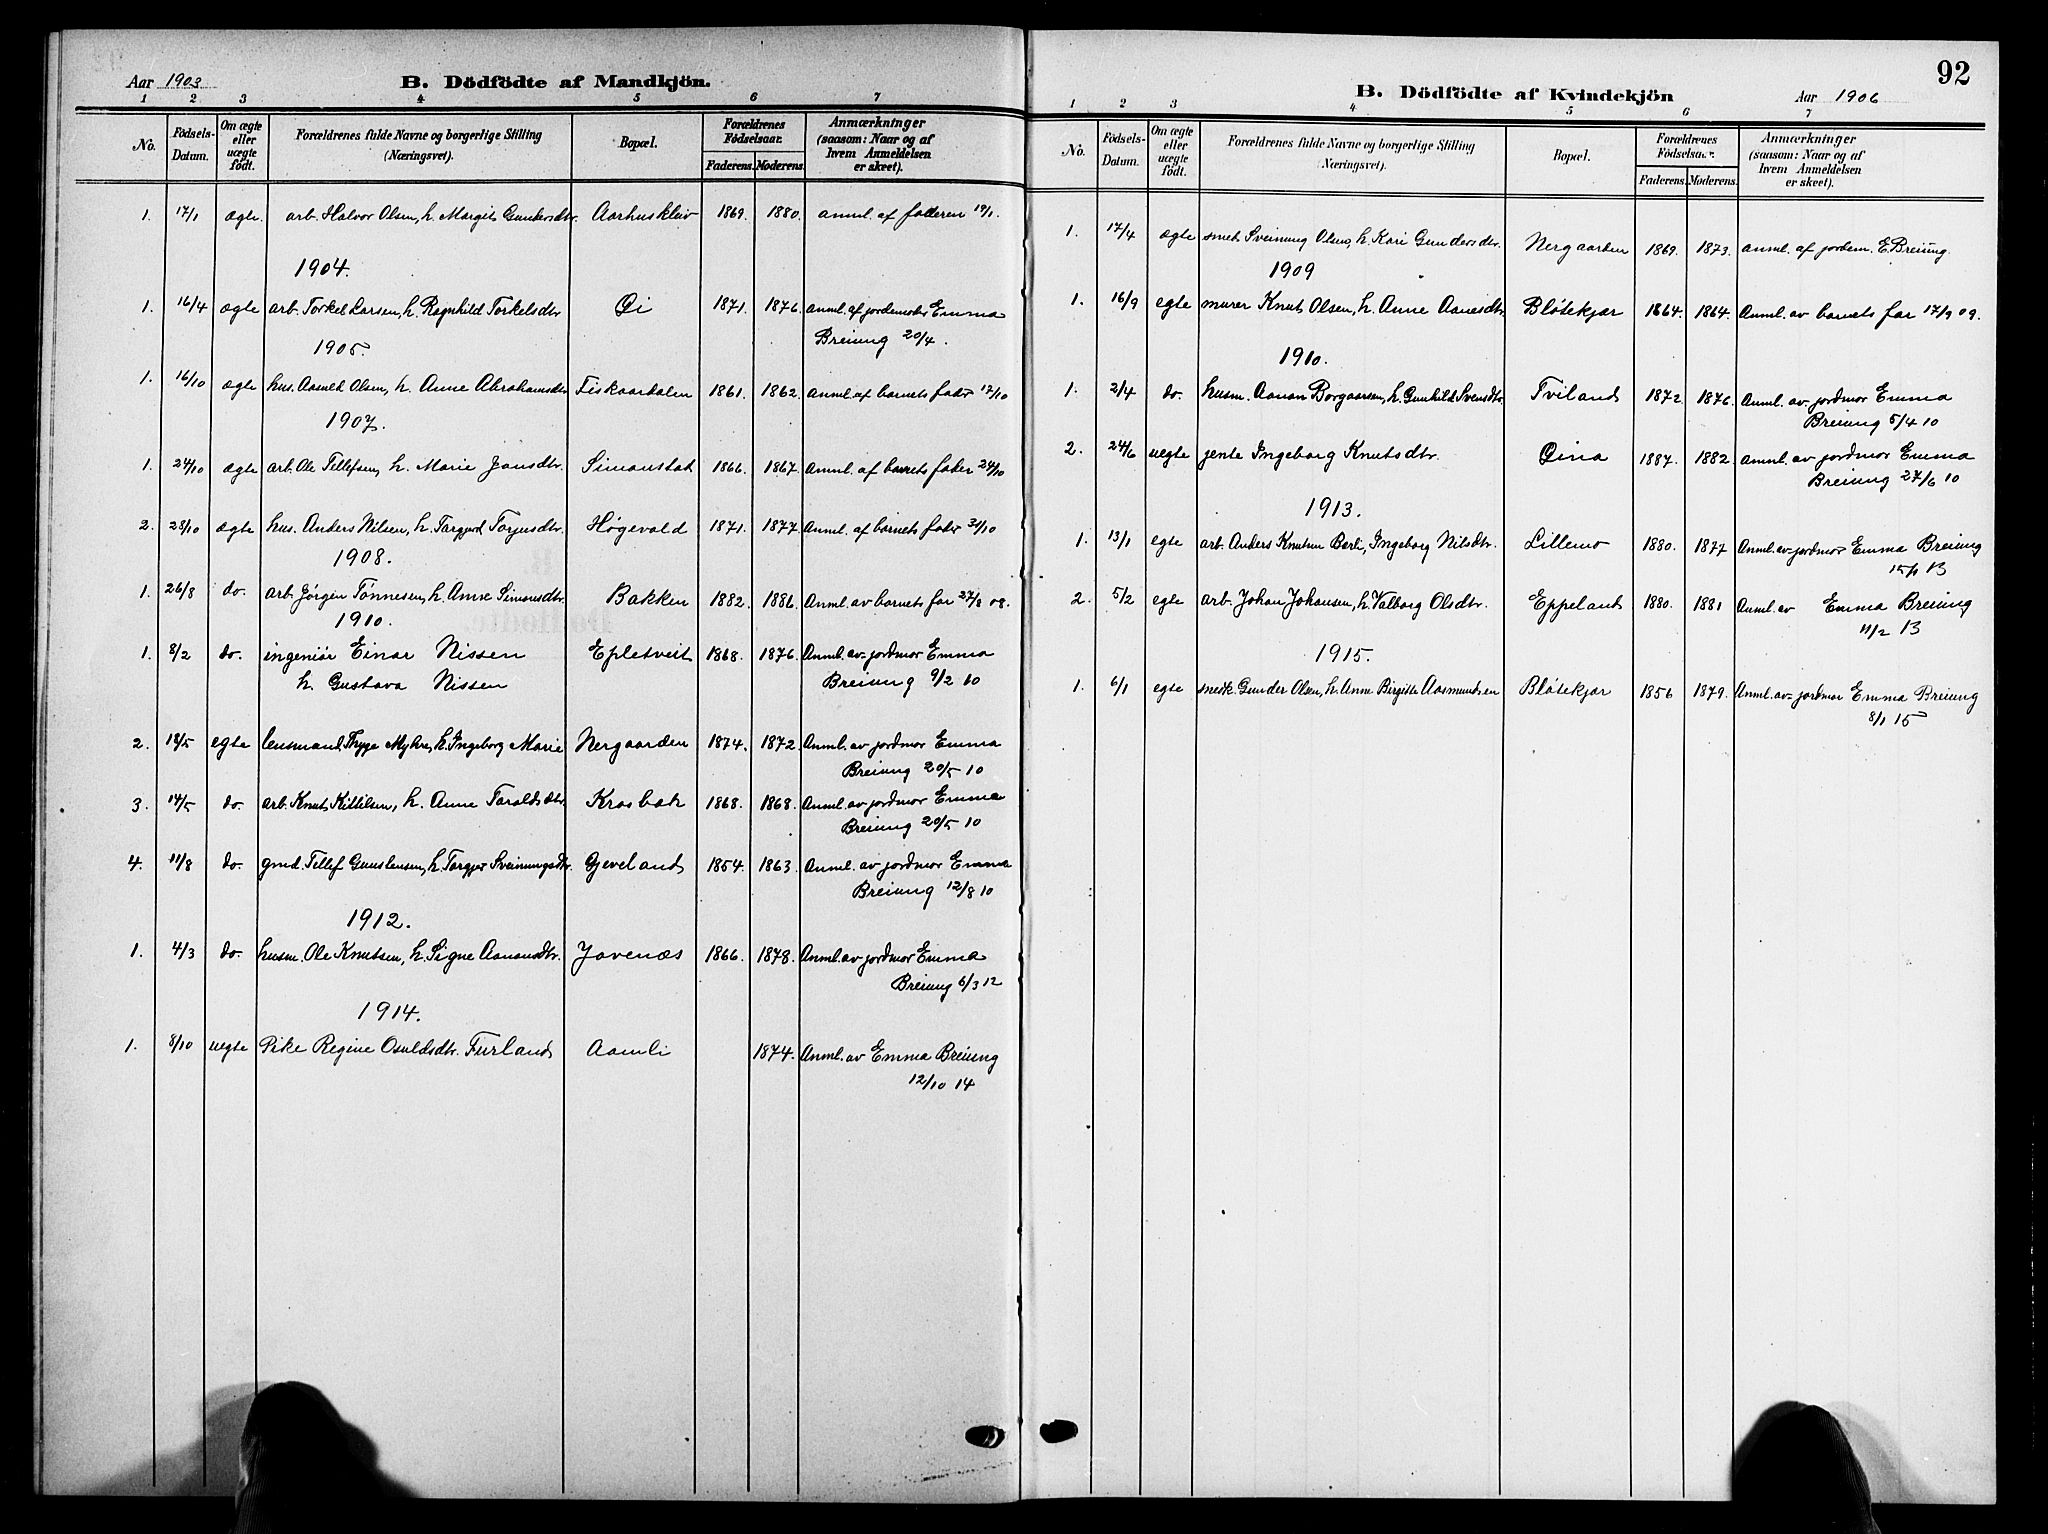 Aar 1903
B. Dödfödte af Mandkjön.
1 2 3 4 5 6 7
No. Födsels-Datum. Om ægte eller uægte født. Forældrenes fulde Navne og borgerlige Stilling (Næringsvei). Bopæl. Forældrenes Födselsaar. Faderens. Moderens. Anmærkninger (saasom: Naar og af hvem Anmeldelsen er skeet).
1. 17/1 ægte arb. Halvor Olsen, h. Margit Gundersdtr Aarhuskleiv 1869. 1880. anml. af faderen 19/1.
1904.
1. 16/4 ægte arb. Torkel Larsen, h. Ragnhild Torkelsdtr Øi 1871. 1876. anml. af jordemoder Emma
Breiung 20/4.
1905.
1. 16/10 ægte hus. Aameld Olsen, h. Anne Abrahamsdtr Fiskaardalen 1861. 1862. anml. af barnets fader 17/10
1907.
1. 24/10 ægte arb. Ole Tellefsen, h. Marie Jonsdtr. Simonstat 1866. 1867. anml. af barnets fader 24/10
2. 28/10 ægte hus. Anders Nilsen, h. Targjerd Torjusdtr. Høgevold 1871. 1877. Anml. af barnets fader 31/10
1908.
1. 26/8 do. arb. Jørgen Tønnesen, h. Anne Simonsdtr. Bakken 1882. 1886. Anml. av barnets far 27/8 08.
1910.
1. 8/2 do. ingeniør Einar Nissen Epletveit 1868. 1876. Anml. av jordmor Emma
h. Gustava Nissen Breiung 9/2 10
2. 18/5 egte lensmand Trygge Myhre, h. Ingeborg Marie Nergaarden 1874. 1872. Anml. av jordmor Emma
Breiung 20/5 10
3. 14/5 do. arb. Knut Kittilsen, h. Anne Taraldsdtr. Krosbak 1868. 1868. Anml. av jordmor Emma
Breiung 20/5 10
4. 11/8 do. gmd. Tellef Gunsteinsen, h. Targjer Sveinungsdtr. Gjeveland 1854. 1863. Anml. av jordmor Emma
Breiung 12/8 10
1912.
1. 4/3 do. husm. Ole Knutsen, h. Signe Aanonsdtr. Jovenæs 1866. 1878. Anml. av jordmor Emma
Breiung 6/3 12
1914.
1. 8/10 uegte Pike Regine Osuldsdtr. Furland Aamli 1874. Anml. av Emma Breiung
12/10 14
92
B. Dödfödte af Kvindekjön
Aar 1906
1 2 3 4 5 6 7
No. Födsels-Datum. Om ægte eller uægte födt. Forældrenes fulde Navne og borgerlige Stilling (Næringsvei). Bopæl. Forældrenes Födselsaar. Faderens. Moderens. Anmærkninger (saasom: Naar og af hvem Anmeldelsen er skeet).
1. 17/4 ægte smed Sveinung Olsen, h. Kari Gundersdtr. Nergaarden 1869. 1873. anml. af jordem. E. Breiung.
1909
1. 16/9 egte murer Knut Olsen, h. Anne Aanesdtr Bløtekjær 1664. 1864. Anml. av barnets far 17/9 09.
1910.
1. 2/4 do. husm. Aanon Borgaarsen, h. Gunhild Svensdtr. Tviland 1872. 1876. Anml. av jordmor Emma
Breiung 5/4 10
2. 24/6 uegte jente Ingeborg Knutsdtr. Øina 1887. 1882. anml. av jordmor Emma
Breiung 27/6 10
1913.
1. 13/1 egte arb. Anders Knutsen Berli, Ingeborg Nilsdtr. Lillemo 1880. 1877 Anml. av jordmor Emma Breiung
15/1 13
2. 5/2 egte arb. Johan Johansen, h. Valborg Olsdtr. Eppeland 1880. 1881 Anml. av Emma Breiung
11/2 13
1915.
1. 6/1 egte snedk. Gunder Olsen, h. Anne Birgitte Aasmundsen Bløtekjær 1856 1879. Anml. av jordmor Emma Breiung
8/1 15